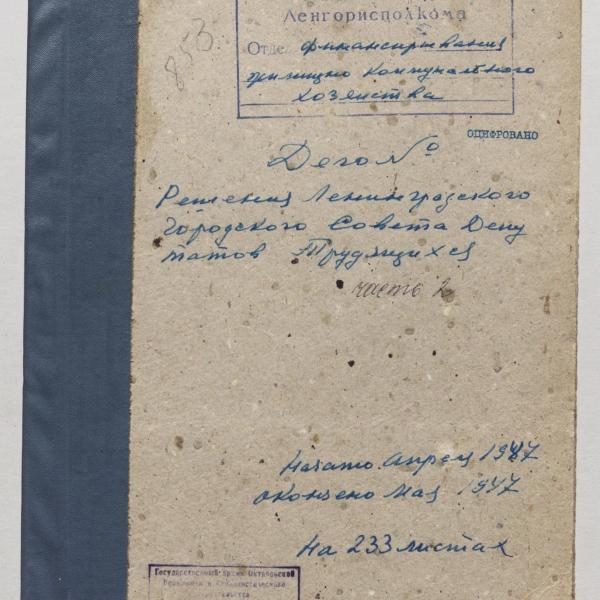 853
Ленгорисполкома
Отдел финансирования
жилищно коммунального
хозяйства
ОЦИФРОВАНО
Дело №
Решения Ленинградского
Городского Совета Депу
татов Трудящихся
часть 2
Начато Апрель 1947
окончено Мая 1947
На 233 листах
Государственный Архив Октябрьской
Революции и Социалистического